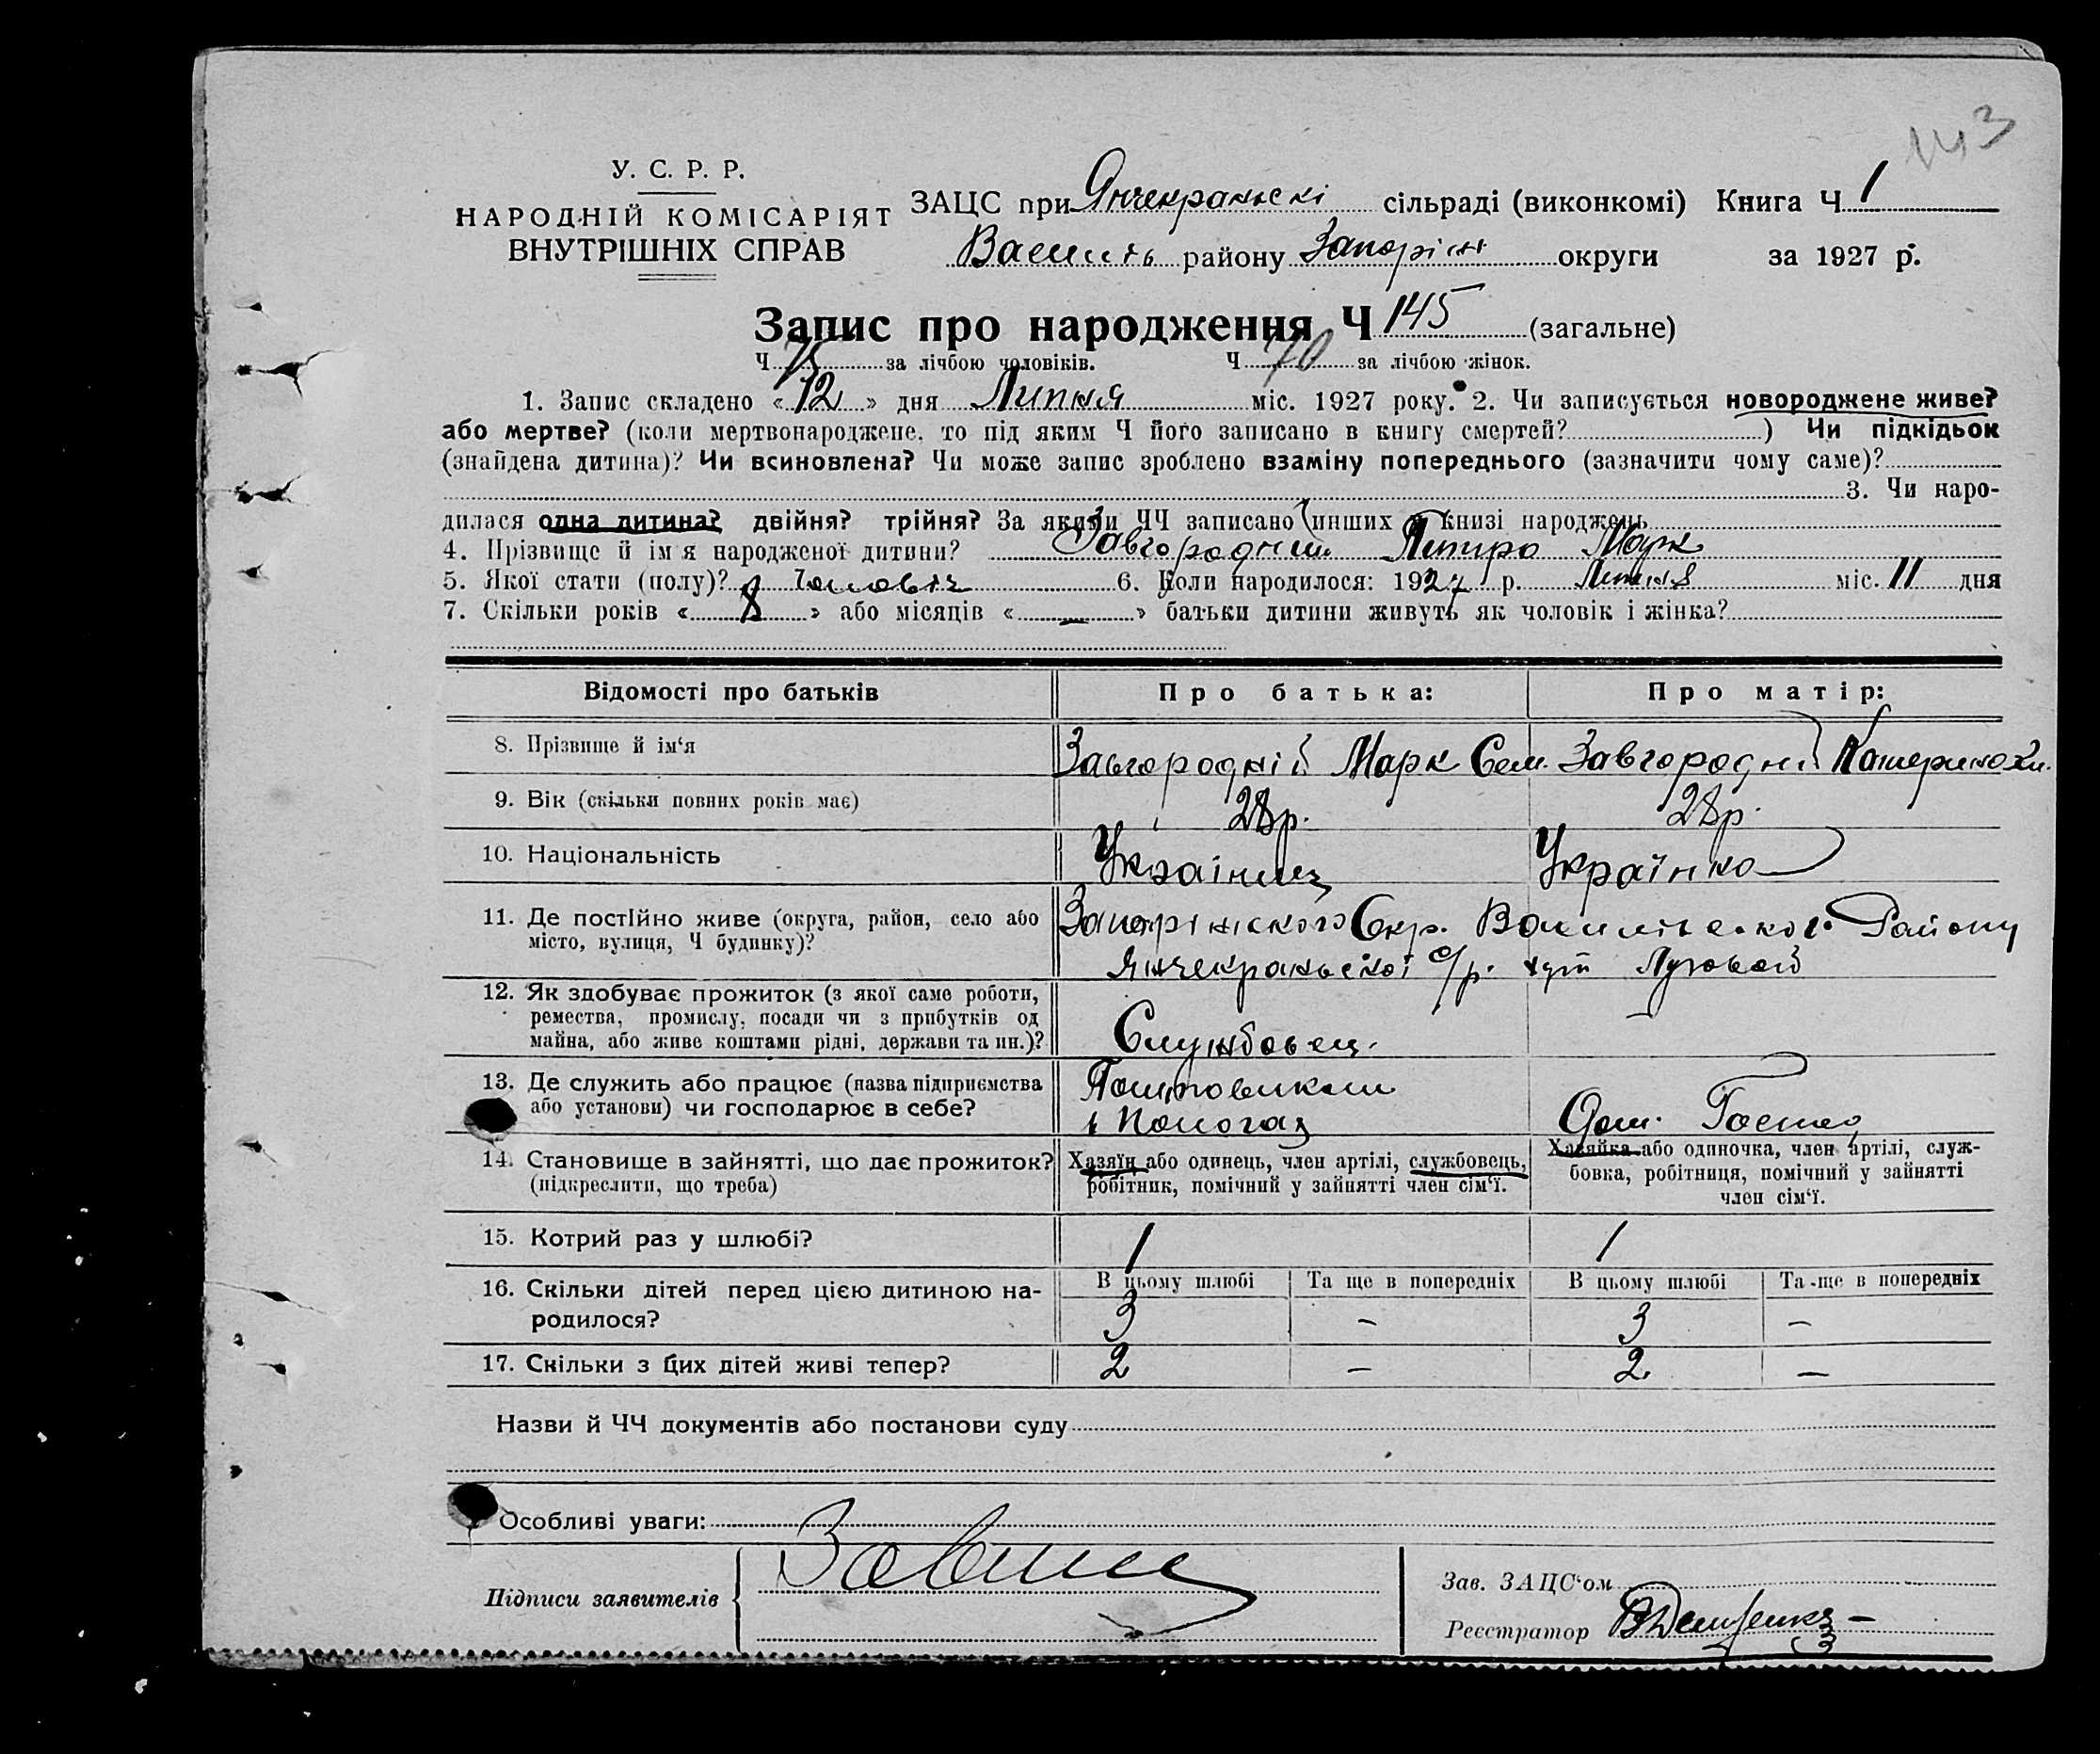 143
У. С. Р. Р.
НАРОДНІЙ КОМІСАРІЯТ
ВНУТРІШНІХ СПРАВ
ЗАЦС при Янчекракьскі сільраді (виконкомі) Книга Ч 1
Василь району Запоріж округи за 1927 р.
Запис про народження Ч 145 (загальне)
Ч 75 за лічбою чоловіків. Ч 70 за лічбою жінок.
1. Запис складено « 12 » дня Липня міс. 1927 року. 2. Чи записується новороджене живе?
або мертве? (коли мертвонароджене, то під яким Ч його записано в книгу смертей? ) Чи підкідьок
(знайдена дитина)? Чи всиновлена? Чи може запис зроблено взаміну попереднього (зазначити чому саме)?
3. Чи наро-
дилася одна дитина? двійня? трійня? За якими ЧЧ записано инших в книзі народжень
4. Прізвище й ім'я народженої дитини? Завгородний Петро Марк
5. Якої стати (полу)? Чоловіч 6. Коли народилося: 1927 р. Липня міс. 11 дня
7. Скільки років « 8 » або місяців « — » батьки дитини живуть як чоловік і жінка?
Відомості про батьків Про батька: Про матір:
8. Прізвище й ім'я Завгородній Марк Сем. Завгородній Катерина
9. Вік (скільки повних років має) 28р. 28р.
10. Національність Українець Українка
11. Де постійно живе (округа, район, село або
місто, вулиця, Ч будинку)?
Запоріжского Окр. Району
Янчекракьскої с/р. хут Луговой
12. Як здобуває прожиток (з якої саме роботи,
ремества, промислу, посади чи з прибутків од
майна, або живе коштами рідні, держави та ин.)?
Службовец.
13. Де служить або працює (назва підприємства
або установи) чи господарює в себе?
Дом. Госпо
14. Становище в зайнятті, що дає прожиток?
(підкреслити, що треба)
Хазяїн або одинець, член артілі, службовець,
робітник, помічний у зайнятті член сім'ї.
Хазяйка або одиночка, член артілі, служ-
бовка, робітниця, помічний у зайнятті
член сім'ї.
15. Котрий раз у шлюбі? 1 1
В цьому шлюбі Та ще в попередніх В цьому шлюбі Та ще в попередніх
16. Скільки дітей перед цією дитиною на-
родилося?
3 – 3 –
17. Скільки з цих дітей живі тепер? 2 – 2 –
Назви й ЧЧ документів або постанови суду
Особливі уваги:
Підписи заявителів
Зав. ЗАЦС'ом
Реєстратор